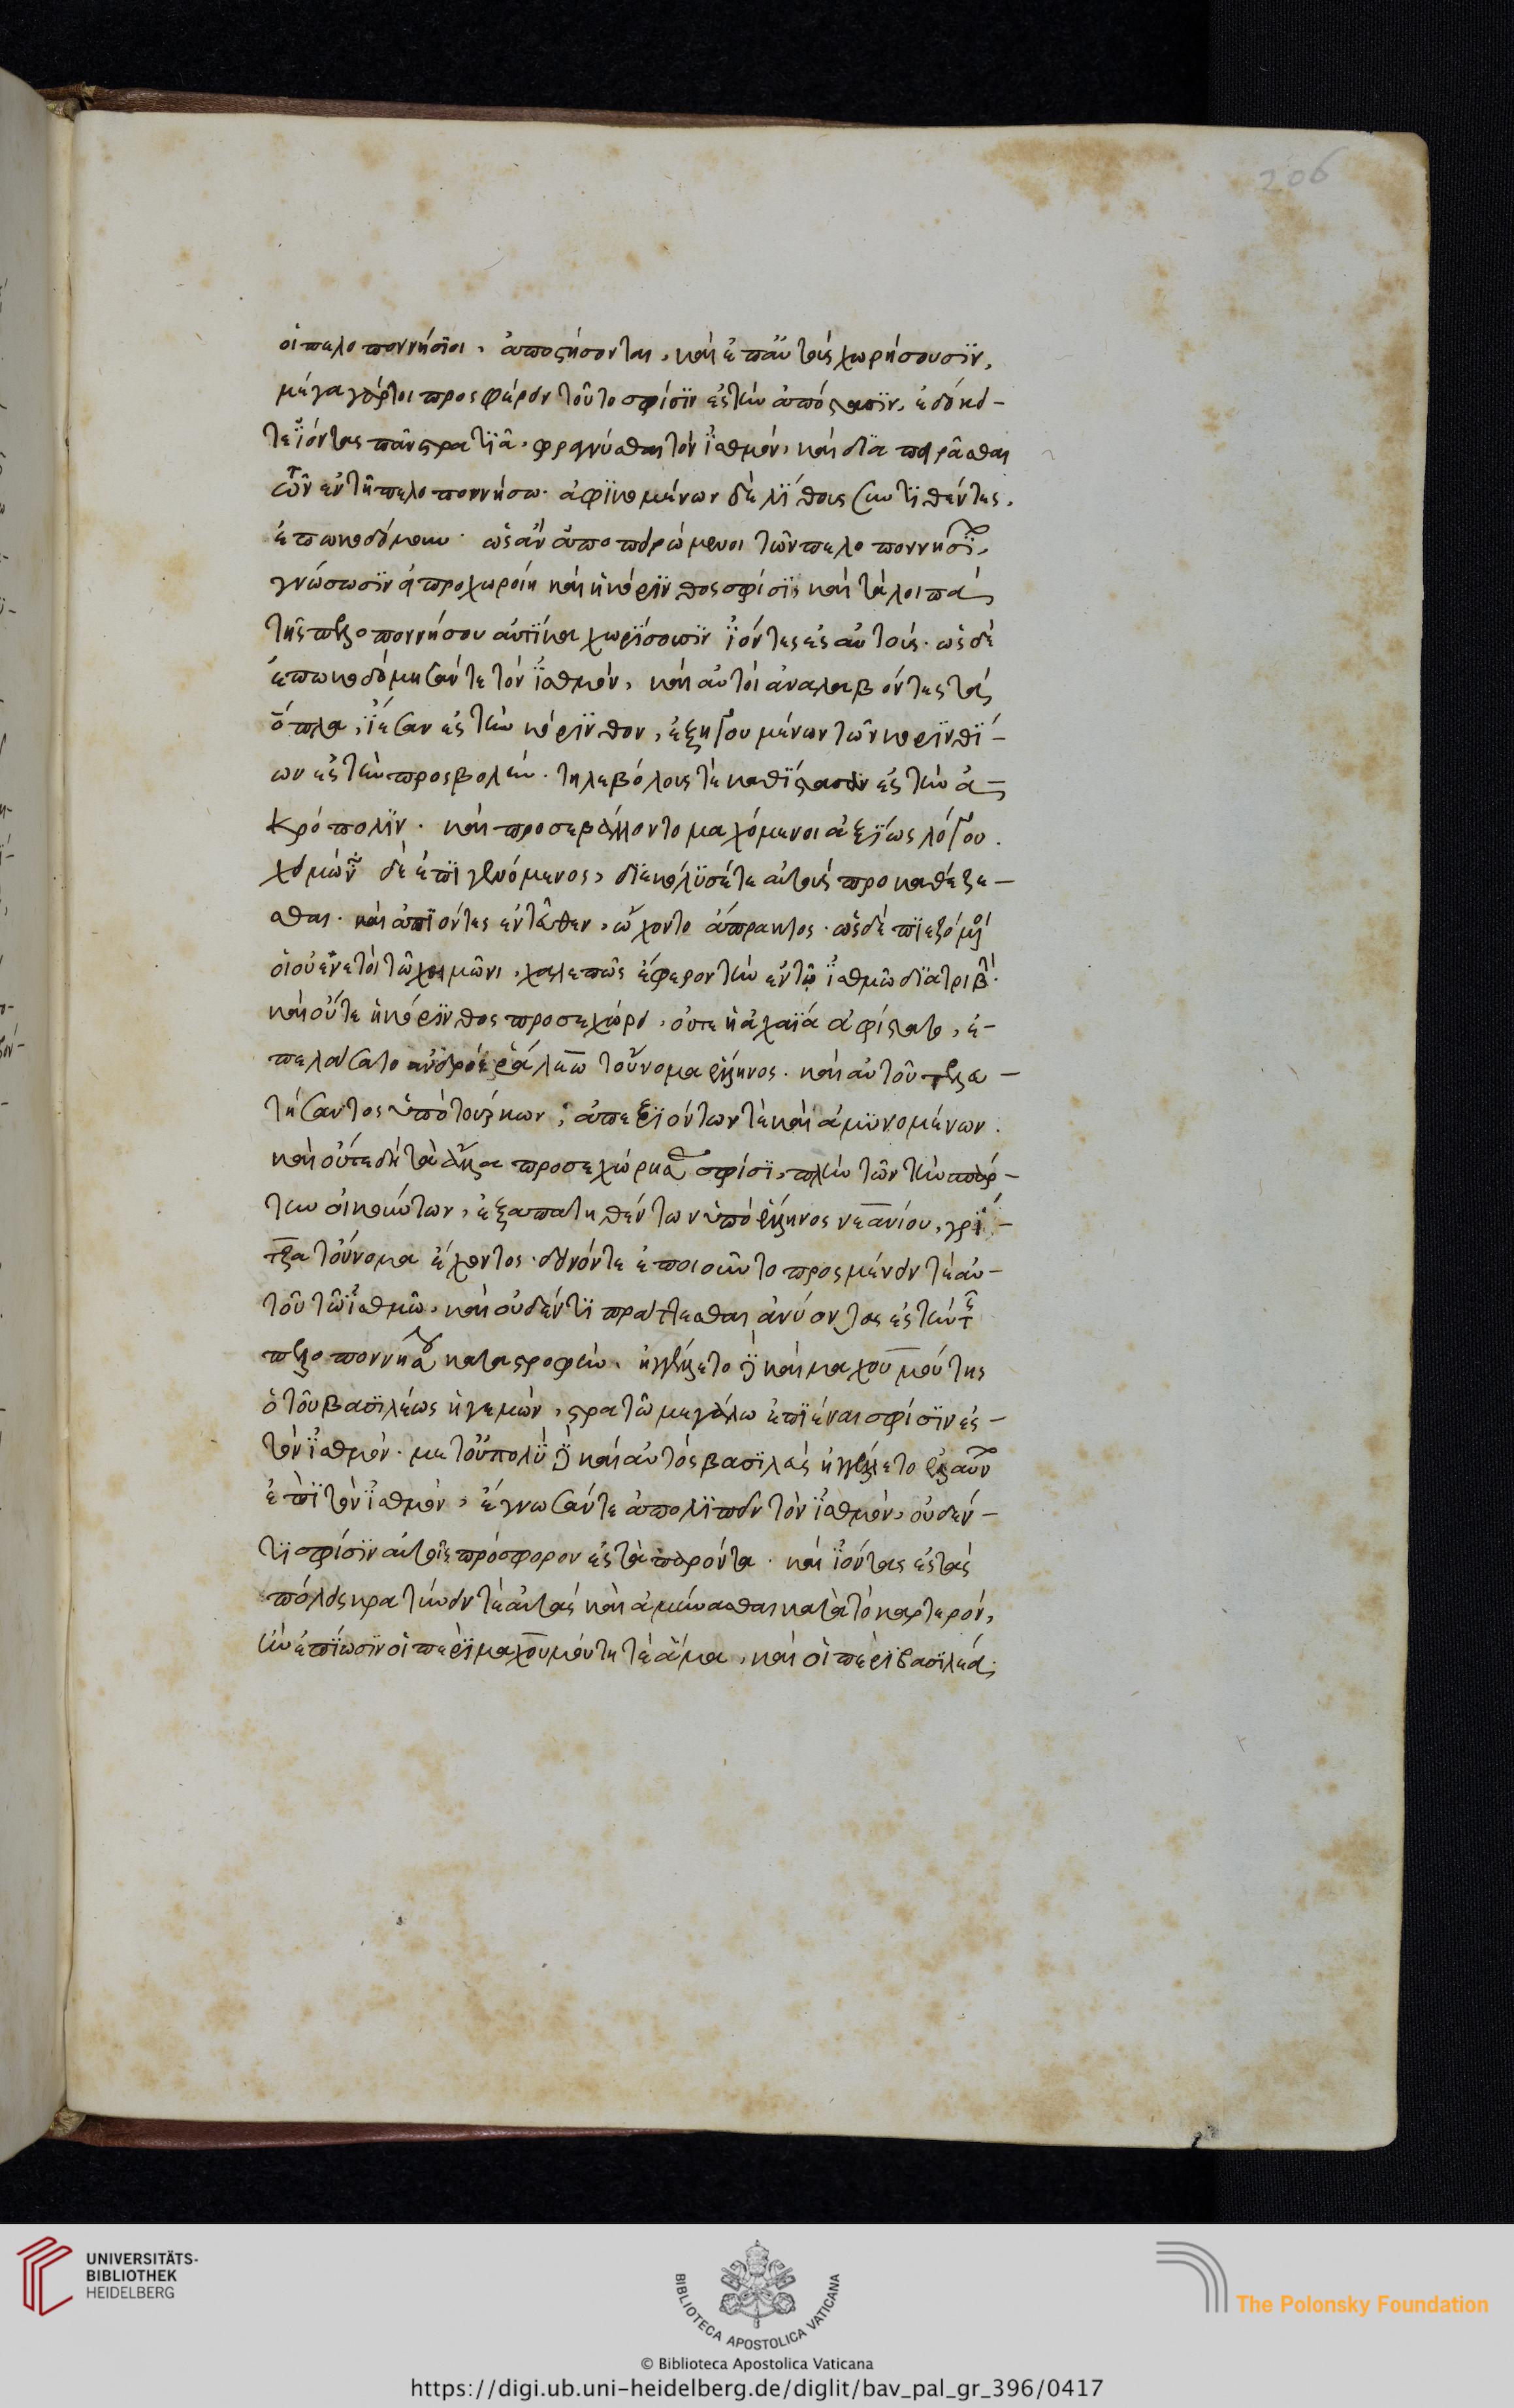 206
οἱ πελοποννήσιοι, ἀποστήσονται, καὶ ἐπ' αὐτοὺς χωρήσουσϊν,
μέγα γάρτοι προσφέρειν τοῦτο σφίσιν ἐς τὴν ἀπόστασϊν. ἐδόκει-
τε ἰόντας πανστρατιᾶ. φράγνυσθαι τὸν ἰσθμὸν, καὶ διαπειρᾶσθαι
τῶν ἐν τῆ πελοποννήσω. ἀφικομένων δὲ λίθοις συντιθέντες,
ἐπωκοδόμουν. ὡς ἂν ἀποπειρώμενοι τῶν πελοποννησί,
γνώσωσϊν εἰ προχωροίη καὶ ἡ κόρινθος σφίσϊ, καὶ τὰ λοιπὰ
τῆς πελοποννήσου αὐτίκα χωρίσωσϊν ἰόντες ἐς αὐτούς. ὡς δὲ
ἐπωκοδόμησάν τε τὸν ἰσθμὸν, καὶ αὐτοὶ ἀναλαβόντες τὰ
ὅπλα, ἵεσαν ἐς τὴν κόρινθον, ἐξηγουμένων τῶν κορινθί-
ων ἐς τὴν προσβολὴν. τηλεβόλους τε καθίστασαν ἐς τὴν ἀ-
κρόπολϊν. καὶ προσεβάλλοντο μαχόμενοι ἀξίως λόγου.
χειμὼν δὲ ἐπιγενόμενος, διεκώλυσέ τε αὐτοὺς προκαθέζε-
σθαι. καὶ ἀπιόντες ἐνταῦθεν, ᾤχοντο ἄπρακτος. ὡς δὲ πιεζόμνοι
οἱ οὐενετοὶ τῶ χειμῶνι, χαλεπῶς ἔφερον τὴν ἐν τῶ ἰσθμῶ διατριβὴ.
καὶ οὔτε ἡ κόρινθος προσεχώρει, οὔτε ἡ ἀχαϊά ἀφίστατο, ἐ-
τοὔνομα ἕλληνος. καὶ αὐτοῦ τελευ-
τήσαντος ὑπὸ τούρκων, ἀπεξιόντων τὲ καὶ ἀμυνομένων.
καὶ οὔτε δὴ τὰ ἄλλα προσεχώρησε σφίσϊ, πλὴν τῶν τὴν
οἰκούντων, ἐξαπατηθέντων ὑπὸ ἕλληνος νεανίου,
τοὔνομα ἔχοντος. δεινόν τε ἐποιοῦντο προσμένειν τὲ αὐ-
τοῦ τῶ ἰσθμῶ. καὶ οὐδέν τι πράττεσθαι ἀνύοντος ἐς τὴν τῆς
πελοποννήσου καταστροφὴν. ἠγγέλλετο δὲ καὶ μαχουμούτης
ὁ τοῦ βασιλέως ἡγεμὼν, στρατῶ μεγάλω ἐπιέναι σφίσϊν ἐς-
τὸν ἰσθμὸν. μετ' οὐπολὺ δὲ καὶ αὐτὸς βασιλεὺς ἠγγέλλετο ἐλαύν
ἐπὶ τὸν ἰσθμὸν, ἔγνωσάν τε ἀπολιπεῖν τὸν ἰσθμὸν, οὐδέν-
τι σφίσϊν αὐτοῖς πρόσφορον ἐς τὰ παρόντα. καὶ ἰόντας ἐς τὰς
πόλεις κρατύνειν τὲ αὐτὰς καὶ ἀμύνασθαι κατὰ τὸ καρτερόν,
ἢν ἐπίωσϊν οἱ περὶ μαχουμούτη τὲ ἅμα, καὶ οἱ περὶ βασιλέα.
UNIVERSITÄTS-
BIBLIOTHEK
HEIDELBERG
BIBLIOTECA APOSTOLICA VATICANA
The Polonsky Foundation
© Biblioteca Apostolica Vaticana
https://digi.ub.uni-heidelberg.de/diglit/bav_pal_gr_396/0417